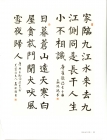 家臨九江水來去九
江側同是長干人生
小不相識
日暮蒼山遠天寒白
屋貧柴門聞犬吠風
雪夜歸人